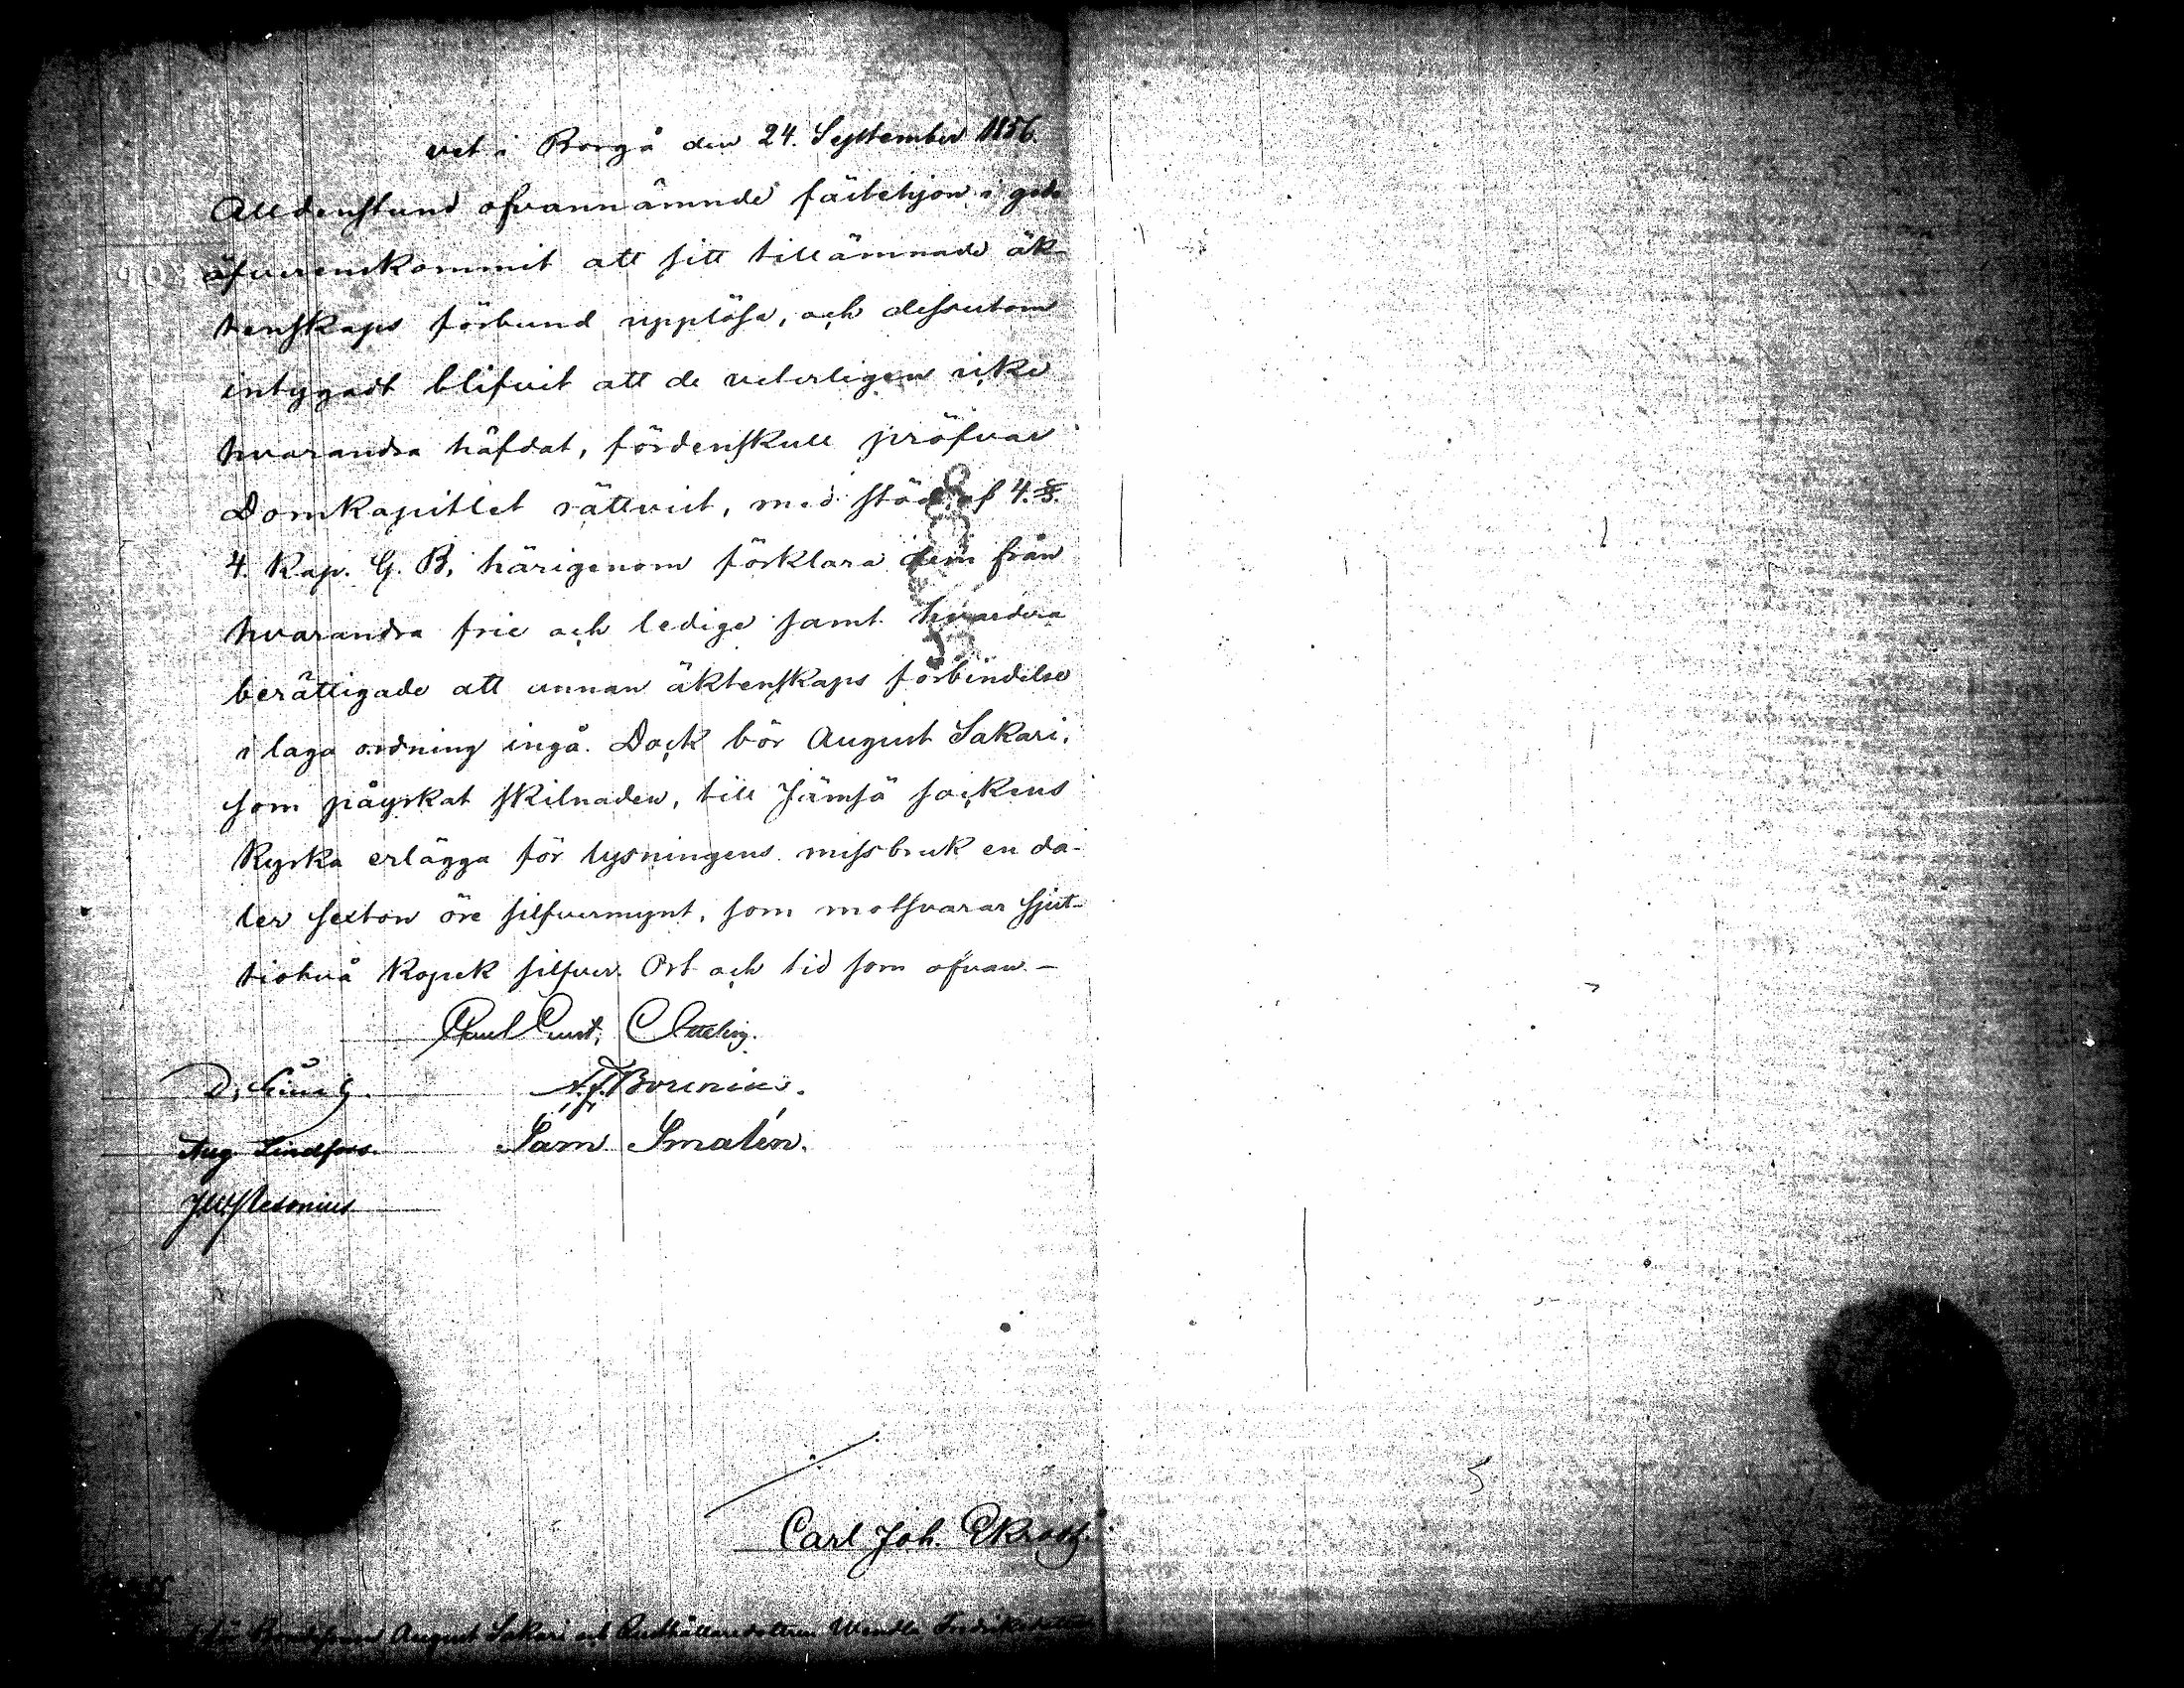 vet i Borgå den 24. September 1856.
Alldenstund ofvannämnde fästehjon i godo
öfverenskommit att sitt tillämnade äk-
tenskaps förbund upplösa, och dessutom
intygadt blifvit att de veterligen icke
hvarandra häfdat, fördenskull pröfvar
Domkapitlet rättvist, med stöd af 4. §.
4. Kap. G. B. härigenom förklara dem från
hvarandra frie och ledige samt hvardera
berättigade att annan äktenskaps förbindelse
i laga ordning ingå. Dock bör August Sakari,
som påyrkat skilnaden, till Jämsä sockens
Kyrka erlägga för lysningens missbruk en da-
ler sexton öre silfvermynt, som motsvarar sjut-
tiotvå Kopek silfver. Ort och tid som ofvan. -
C Ottelin.
Borenius.
Aug. Lindfors. Sam Smalén.
Carl Joh. Ekroos.
August Sakari och Wendla Fredriksdotter